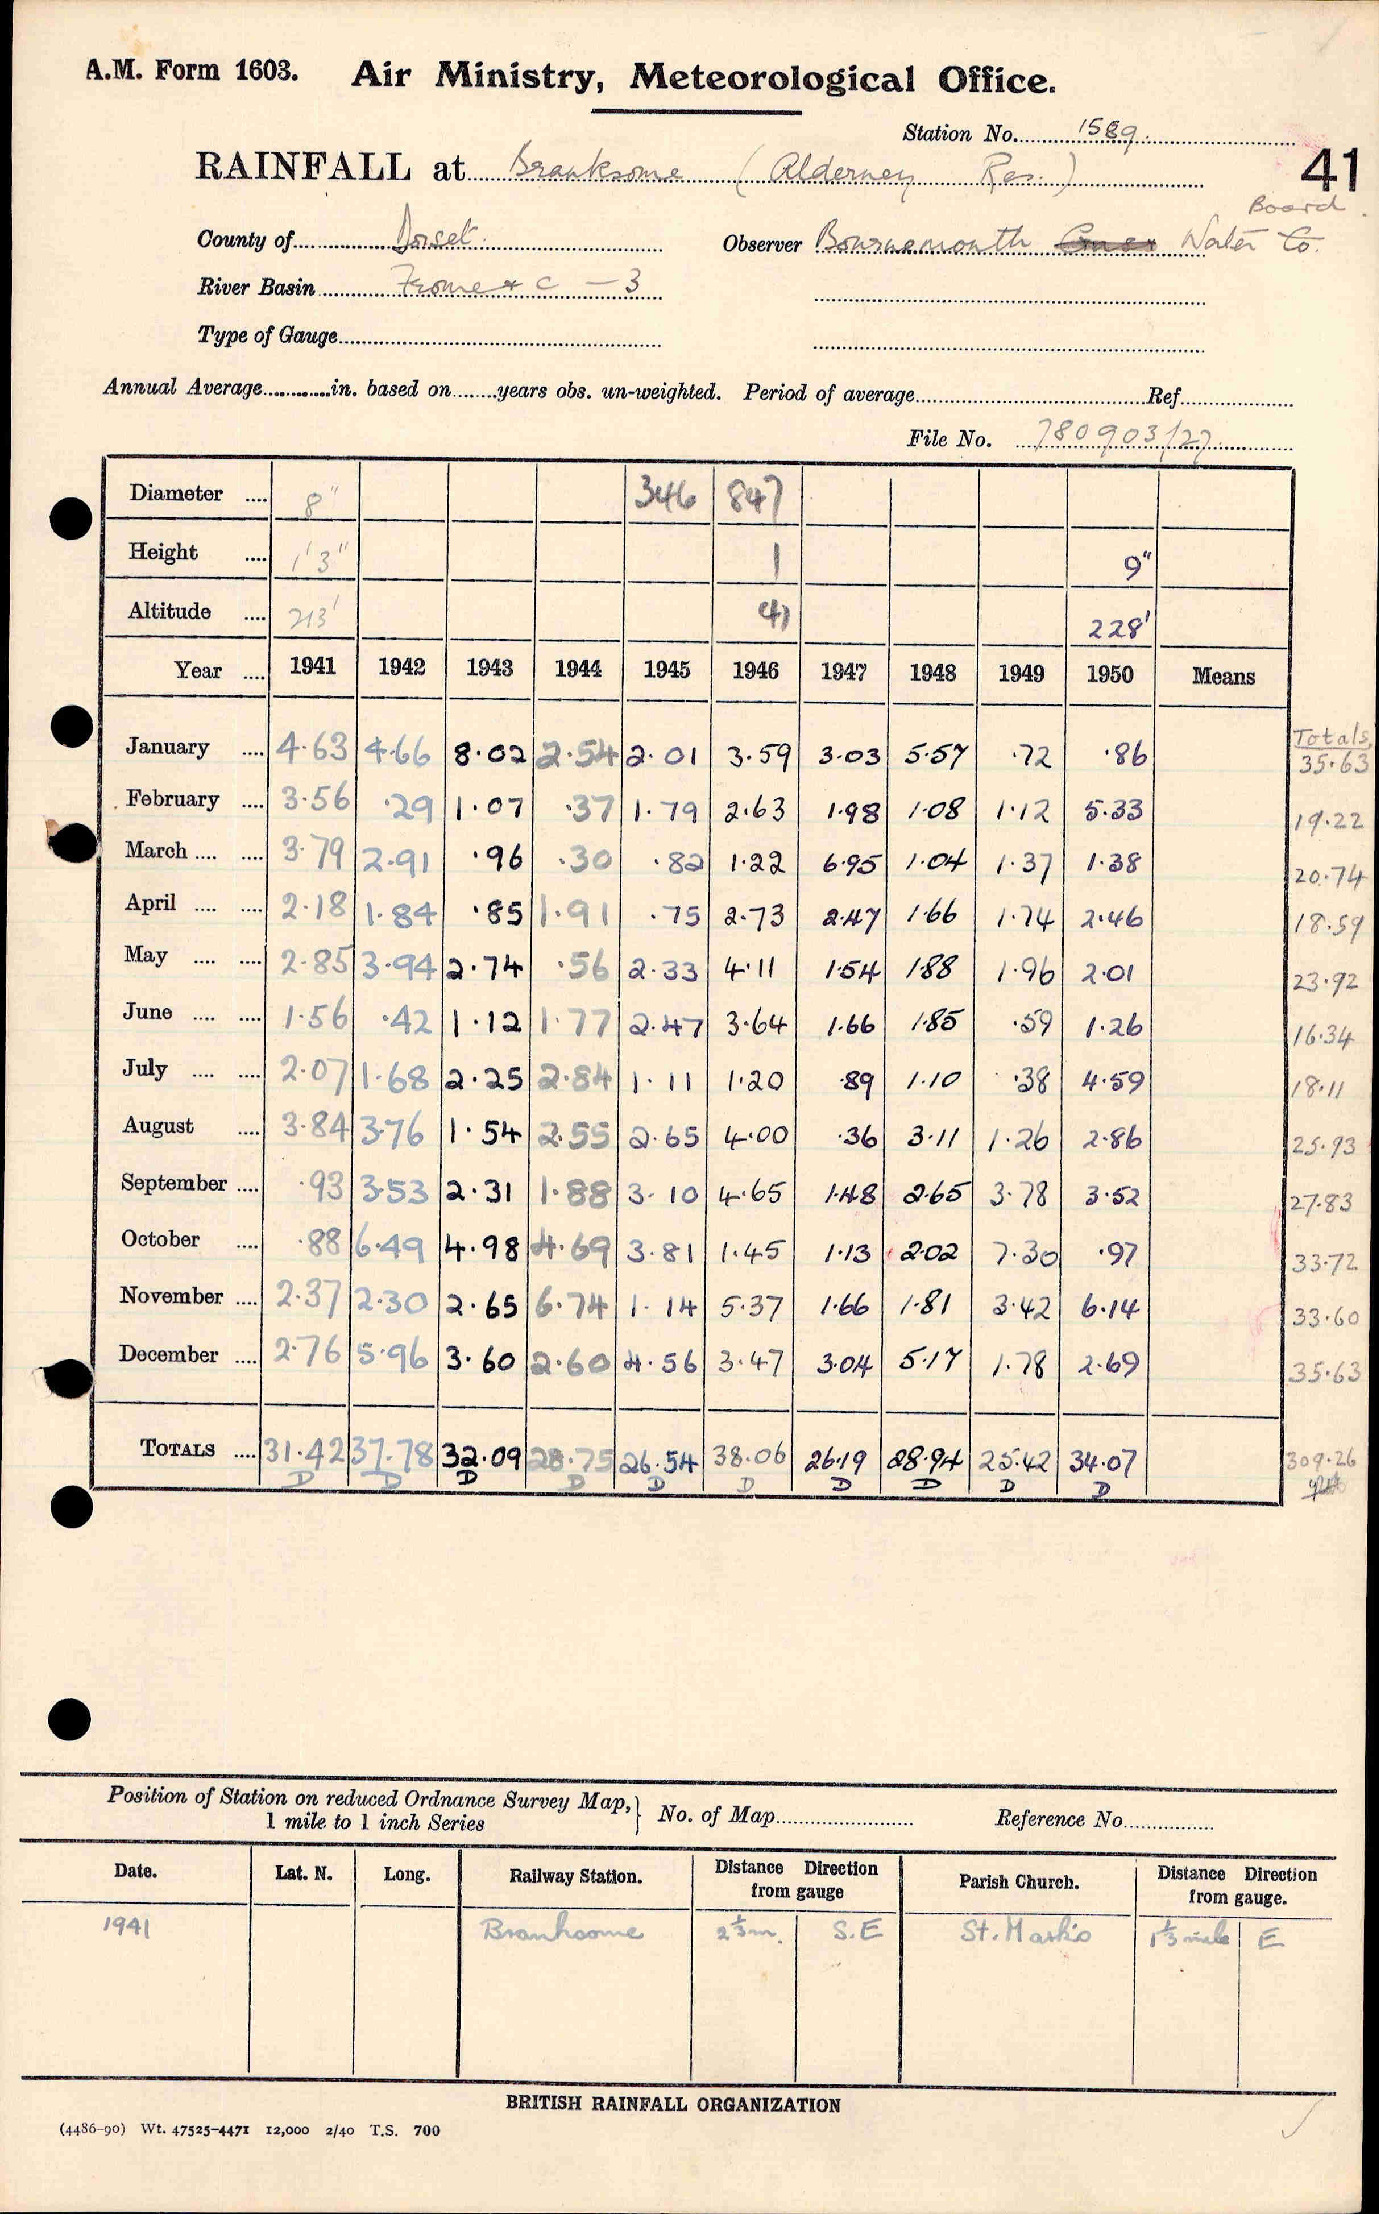 A.M. Form 1603. Air Ministry, Meteorological Office.
Station No. 1589.
RAINFALL at Branksome (Alderney Res.)
41
Board.
County of Dorset. Observer Bournemouth Water Co.
River Basin Frome & C — 3
Type of Gauge
Annual Average in. based on years obs. un-weighted. Period of average Ref
File No. 780903/27.
Diameter .... 8" 346 847
Height .... 1'3" 1 9"
Altitude .... 213' 41 228'
Year .... 1941 1942 1943 1944 1945 1946 1947 1948 1949 1950 Means
Totals
January .... 4.63 4.66 8.02 2.54 2.01 3.59 3.03 5.57 .72 .86 35.63
February .... 3.56 .29 1.07 .37 1.79 2.63 1.98 1.08 1.12 5.33 19.22
March .... .... 3.79 2.91 .96 .30 .82 1.22 6.95 1.04 1.37 1.38 20.74
April .... .... 2.18 1.84 .85 1.91 .75 2.73 2.47 1.66 1.74 2.46 18.59
May .... .... 2.85 3.94 2.74 .56 2.33 4.11 1.54 1.88 1.96 2.01 23.92
June .... .... 1.56 .42 1.12 1.77 2.47 3.64 1.66 1.85 .59 1.26 16.34
July .... .... 2.07 1.68 2.25 2.84 1.11 1.20 .89 1.10 .38 4.59 18.11
August .... 3.84 3.76 1.54 2.55 2.65 4.00 .36 3.11 1.26 2.86 25.93
September .... .93 3.53 2.31 1.88 3.10 4.65 1.48 2.65 3.78 3.52 27.83
October .... .88 6.49 4.98 4.69 3.81 1.45 1.13 2.02 7.30 .97 33.72
November .... 2.37 2.30 2.65 6.74 1.14 5.37 1.66 1.81 3.42 6.14 33.60
December .... 2.76 5.96 3.60 2.60 4.56 3.47 3.04 5.17 1.78 2.69 35.63
TOTALS .... 31.42 37.78 32.09 28.75 26.54 38.06 26.19 28.94 25.42 34.07 309.26
D D D D D D D D D D
Position of Station on reduced Ordnance Survey Map, } No. of Map Reference No
1 mile to 1 inch Series
Date. Lat. N. Long. Railway Station. Distance Direction from gauge Parish Church. Distance Direction from gauge.
1941 Branksome 2⅓m. S.E St. Mark's 1⅓ mile E
BRITISH RAINFALL ORGANIZATION
(4486-90) Wt. 47525-4471 12,000 2/40 T.S. 700